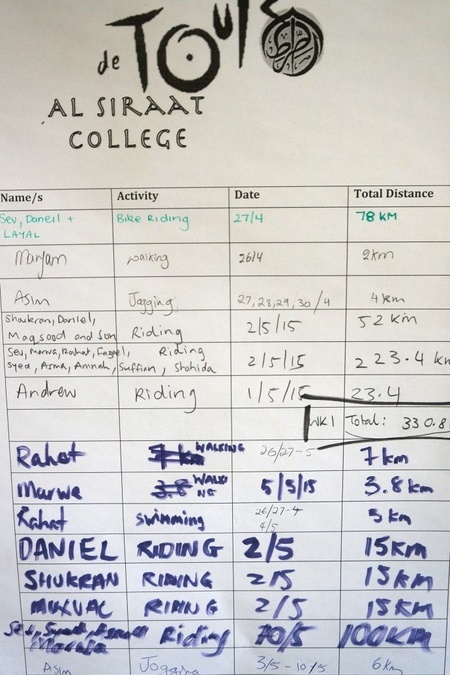 de TOUR
AL SIRAAT
COLLEGE
Name/s Activity Date Total Distance
Sev, Daneil + Bike Riding 27/4 78 KM
LAYAL
Maryam walking 26/4 2km
Asim Jogging 27,28,29,30/4 4km
Shukran, Daniel, 2/5/15 52 km
Maqsood and Son Riding
Sev, Marwa, Rahat, Riding 2/5/15 223.4 km
Syed, Asma, Amnah, Suffian, Shahida
Andrew Riding 1/5/15 23.4
WK1 Total: 330.8
Rahat WALKING 26/27-5 7km
Marwe WALKING 5/5/15 3.8km
Rahat swimming 26/27-4 5km
4/5
DANIEL RIDING 2/5 15KM
SHUKRAN RIDING 2/5 15KM
RIDING 2/5 15KM
Sev, Riding 10/5 100KM
Asim Jogging 3/5-10/5 6km